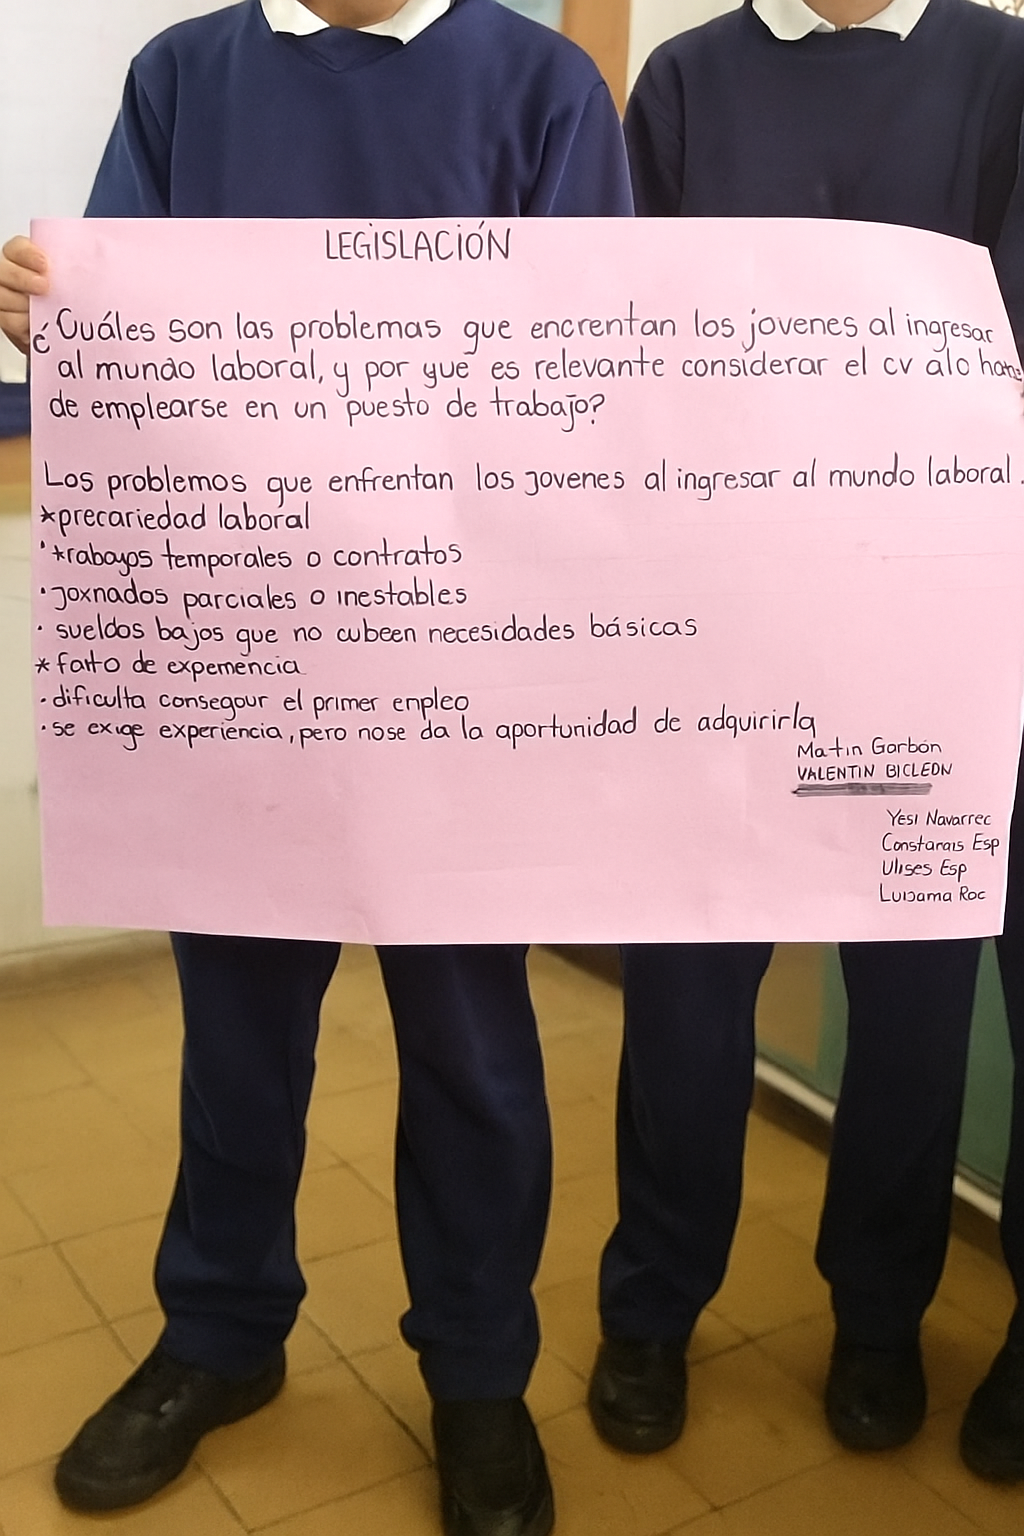 LEGISLACIÓN
¿Cuáles son las problemas que encrentan los jovenes al ingresar
al mundo laboral, y por que es relevante considerar el cv alo
de emplearse en un puesto de trabajo?
Los problemos que enfrentan los jovenes al ingresar al mundo laboral.
*precariedad laboral
· *rabayos temporales o contratos
· joxnados parciales o inestables
· sueldos bajos que no cubeen necesidades básicas
* farto de expemencia
· dificulta consegour el primer enpleo
· se exige experiencia, pero nose da la aportunidad de adquirirla
Matin Garbón
VALENTIN BICLEDN
Yesi Navarrec
Constarais Esp
Ulises Esp
Luisama Roc